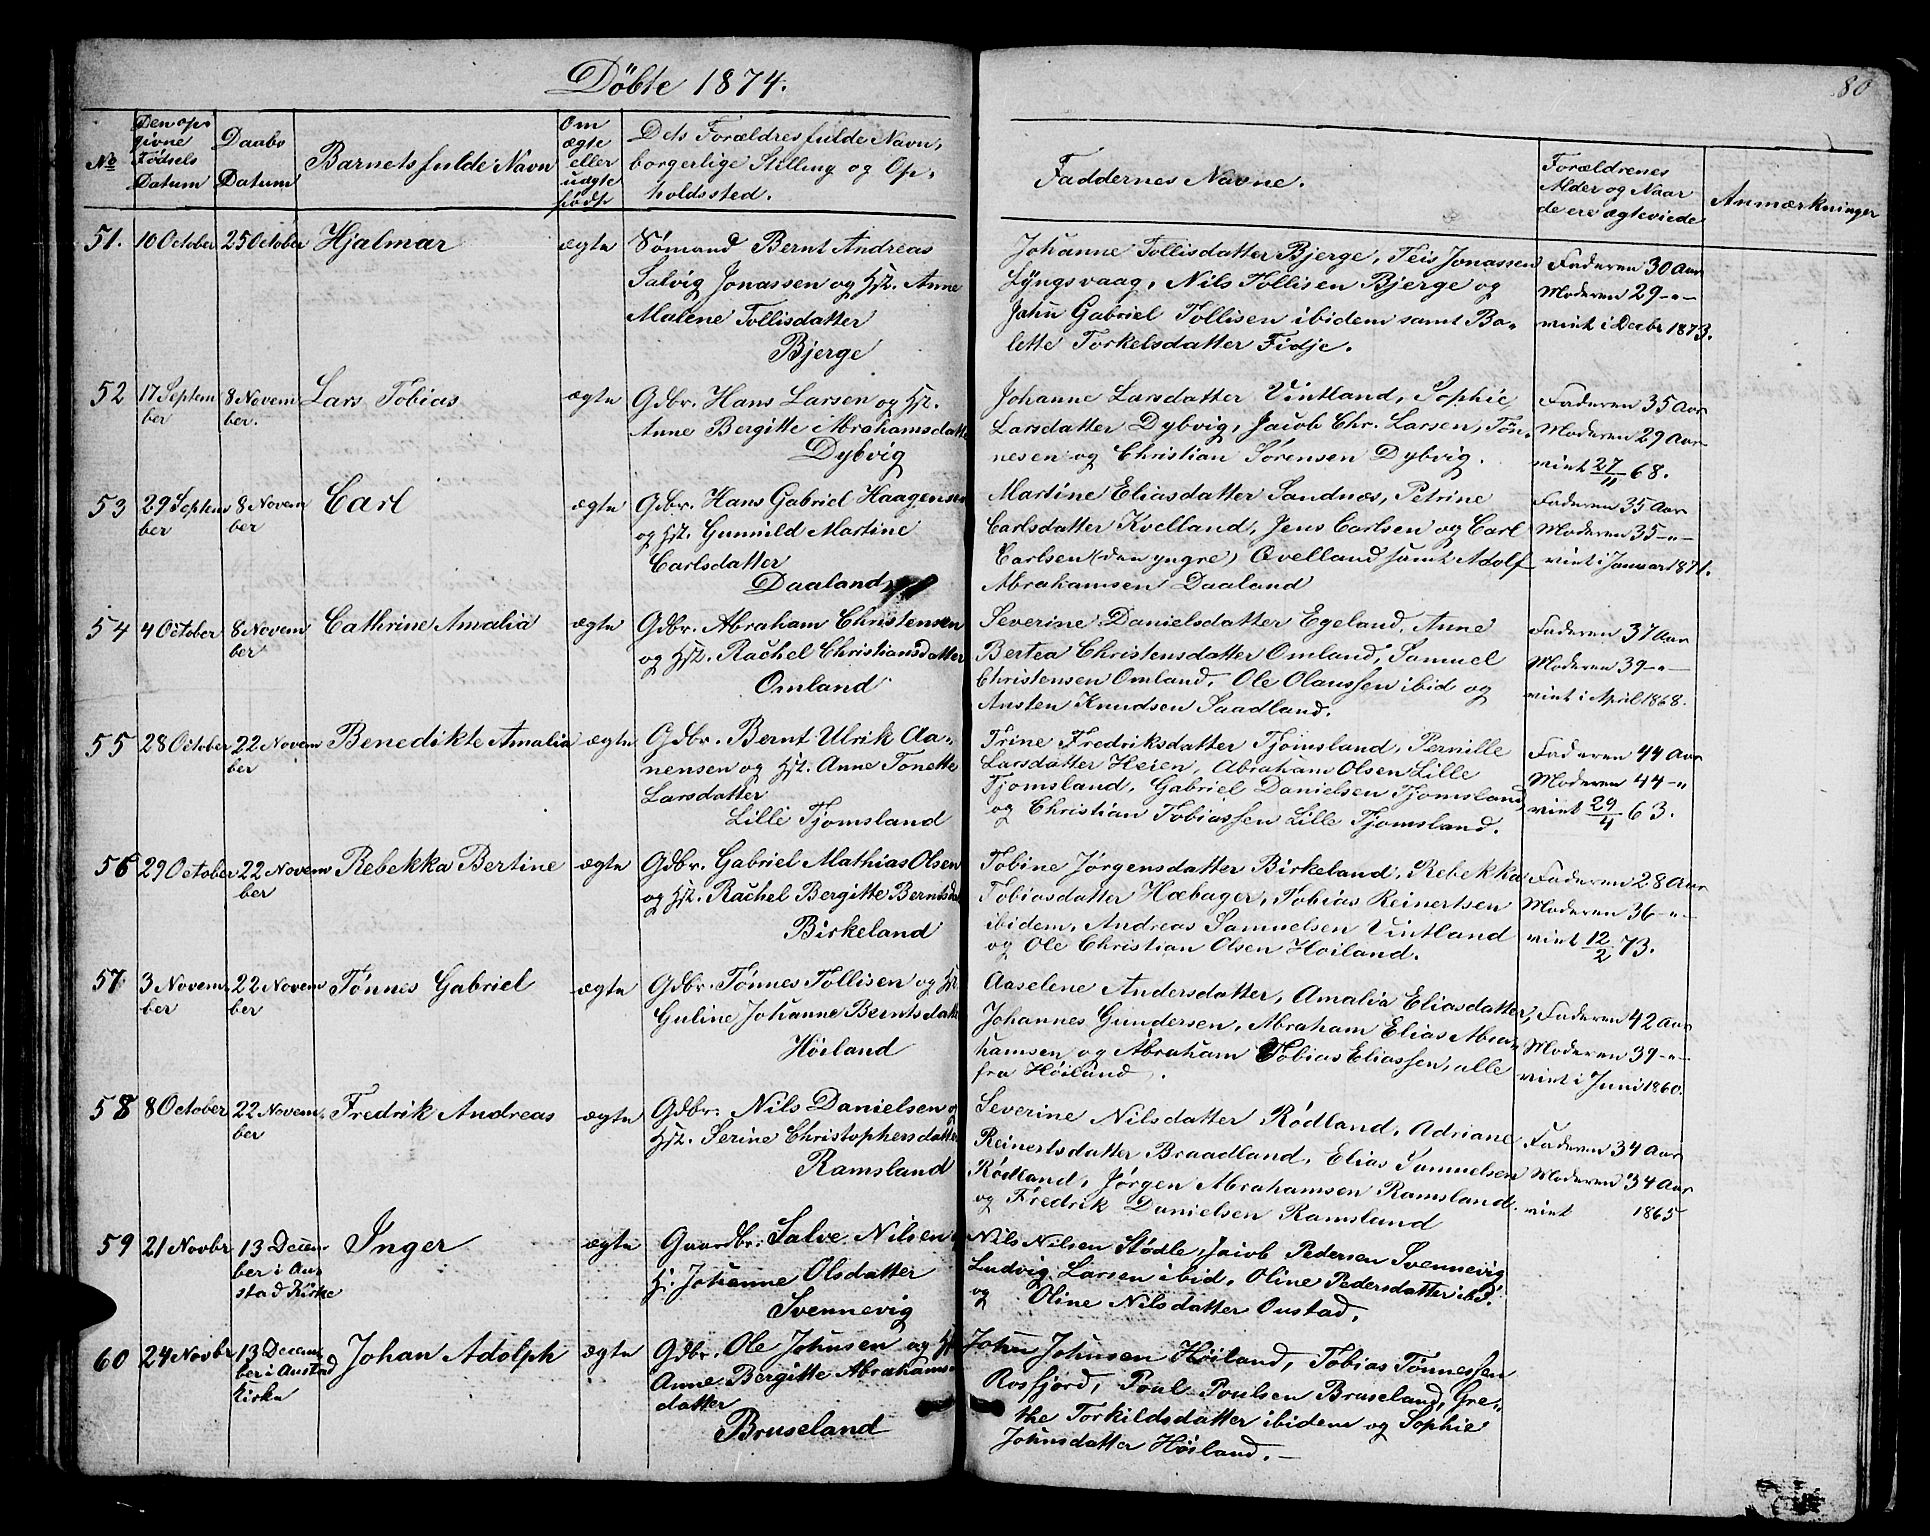 Döbte 1874.
80
No
Den op-
givne
Fødsels
Datum
Daabs
Datum
Barnets fulde Navn
Om
ægte
eller
uægte
født
Dets Forældres fulde Navn,
borgerlige Stilling og Op-
holdssted.
Faddernes Navne.
Forældrenes
Alder og Naar
de ere ægteviede
Anmærkninger
51. 10 October 25 October Hjalmar ægte
Sømand Bernt Andreas
Salvig Jonassen og Hst. Anne
Malene Tollisdatter
Bjerge
Johanne Tollisdatter Bjerge, Teis Jonassen
Lyngsvaag, Nils Tollisen Bjerge og
John Gabriel Tollisen ibidem samt Bo-
lette Torkelsdatter Fidje.
Faderen 30 Aar
Moderen 29 -"-
viet i Decbr 1873.
52 17 Septem
ber
8 Novem
ber.
Lars Tobias ægte
Gdbr. Hans Larsen og Hst.
Anne Bergitte Abrahamsdatte
Dybvig
Johanne Larsdatter Vintland, Sophie
Larsdatter Dybvig, Jacob Chr. Larsen, Tøn-
nesen og Christian Sørensen Dybvig.
Faderen 35 Aar
Moderen 29 Aar
viet 27/11 68.
53 29 Septem
ber
8 Novem
ber
Carl ægte
Gdbr. Hans Gabriel Haagensen
og Hst. Gunnild Martine
Carlsdatter
Daaland
Martine Eliasdatter Sandnes, Petrine
Carlsdatter Kvelland, Jens Carlsen og Carl
Carlsen (den yngre) Qvelland samt Adolf
Abrahamsen Daaland
Faderen 35 Aar
Moderen 35 -"-
viet i Januar 1871.
54 4 October 8 Novem
ber
Cathrine Amalia ægte
Gdbr. Abraham Christensen
og Hst. Rachel Christiansdatter
Omland
Severine Danielsdatter Egeland, Anne
Bertea Christensdatter Omland, Samuel
Christensen Omland, Ole Olaussen ibid og
Ansten Knudsen Saadland.
Faderen 37 Aar
Moderen 39 -"-
viet i April 1868.
55 28 October 22 Novem
ber
Benedikte Amalia ægte
Gdbr. Bernt Ulrik Aa-
nensen og Hst. Anne Tonette
Larsdatter
Lille Tjomsland
Trine Fredriksdatter Tjomsland, Pernille
Larsdatter Heien, Abraham Olsen Lille
Tjomsland, Gabriel Danielsen Tjomsland,
og Christian Tobiassen Lille Tjomsland.
Faderen 44 Aar
Moderen 44 -"
viet 29/4 63.
56 29 October 22 Novem
ber
Rebekka Bertine ægte
Gdbr. Gabriel Mathias Olsen
og Hst. Rachel Bergitte Berntsda
Birkeland
Tobine Jørgensdatter Birkeland, Rebekka
Tobiasdatter Hæbager, Tobias Reinertsen
ibidem, Andreas Samuelsen Vintland
og Ole Christian Olsen Høiland.
Faderen 28 Aar
Moderen 36 -"-
viet 12/2 73.
57 3 Novem
ber
22 Novem
ber
Tønnes Gabriel ægte
Gdbr. Tønnes Tollisen og Hst.
Guline Johanne Berntsdatt
Höiland
Aaselene Andersdatter, Amalia Eliasdatter,
Johannes Gundersen, Abraham Elias Abra-
hamsen og Abraham Tobias Eliassen, alle
fra Høiland.
Faderen 42 Aar
Moderen 39 -"-
viet i Juni 1860.
58 8 October 22 Novem
ber
Fredrik Andreas ægte
Gdbr: Nils Danielsen og
Hst. Serine Christophersdatter
Ramsland
Severine Nilsdatter Rødland, Adriane
Reinertsdatter Braadland, Elias Samuelsen
Rødland, Jørgen Abrahamsen Ramsland
og Fredrik Danielsen Ramsland
Faderen 34 Aar
Moderen 34 Aar
viet 1865
59 21 Novbr 13 Decem-
ber i Au-
stad Kirke
Inger ægte
Gaardbr: Salve Nilsen
H: Johanne Olsdatter
Svennevig
Nils Nilsen Stødle, Jacob Pedersen Svennevig
Ludvig Larsen ibid, Oline Pedersdatter ibid.
og Oline Nilsdatter Oustad.
60 24 Novbr 13 Decem
ber i Austad
Kirke
Johan Adolph ægte
Gdbr. Ole Johnsen og Hst
Anne Bergitte Abrahams-
datter
Bruseland
John Johnsen Höiland, Tobias Tønnessen
Rosfjord, Poul Poulsen Bruseland, Gre-
the Torkildsdatter ibidem og Sophie
Johnsdatter Høiland. -